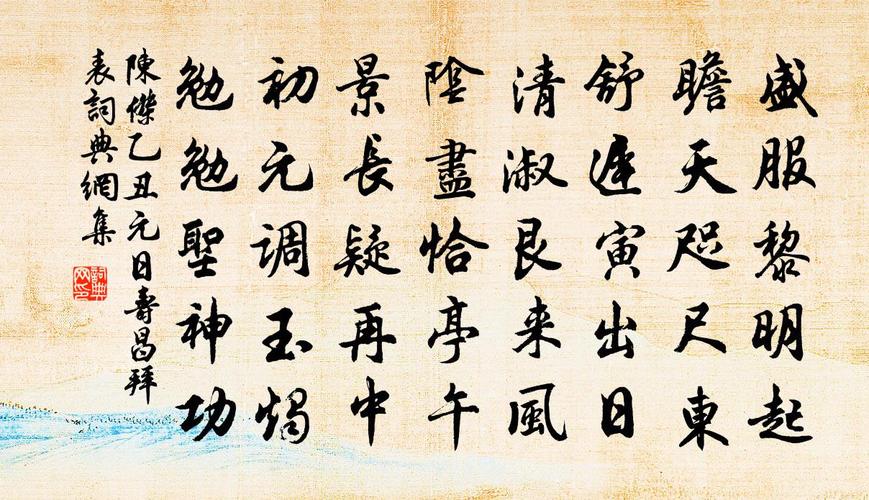 盛服黎明起
瞻天咫尺東
舒遲寅出日
清淑艮来風
陰盡恰亭午
景長疑再中
初元调玉燭
勉勉聖神功
陳傑乙丑元日壽昌拜
表詞典網集
詞典网印